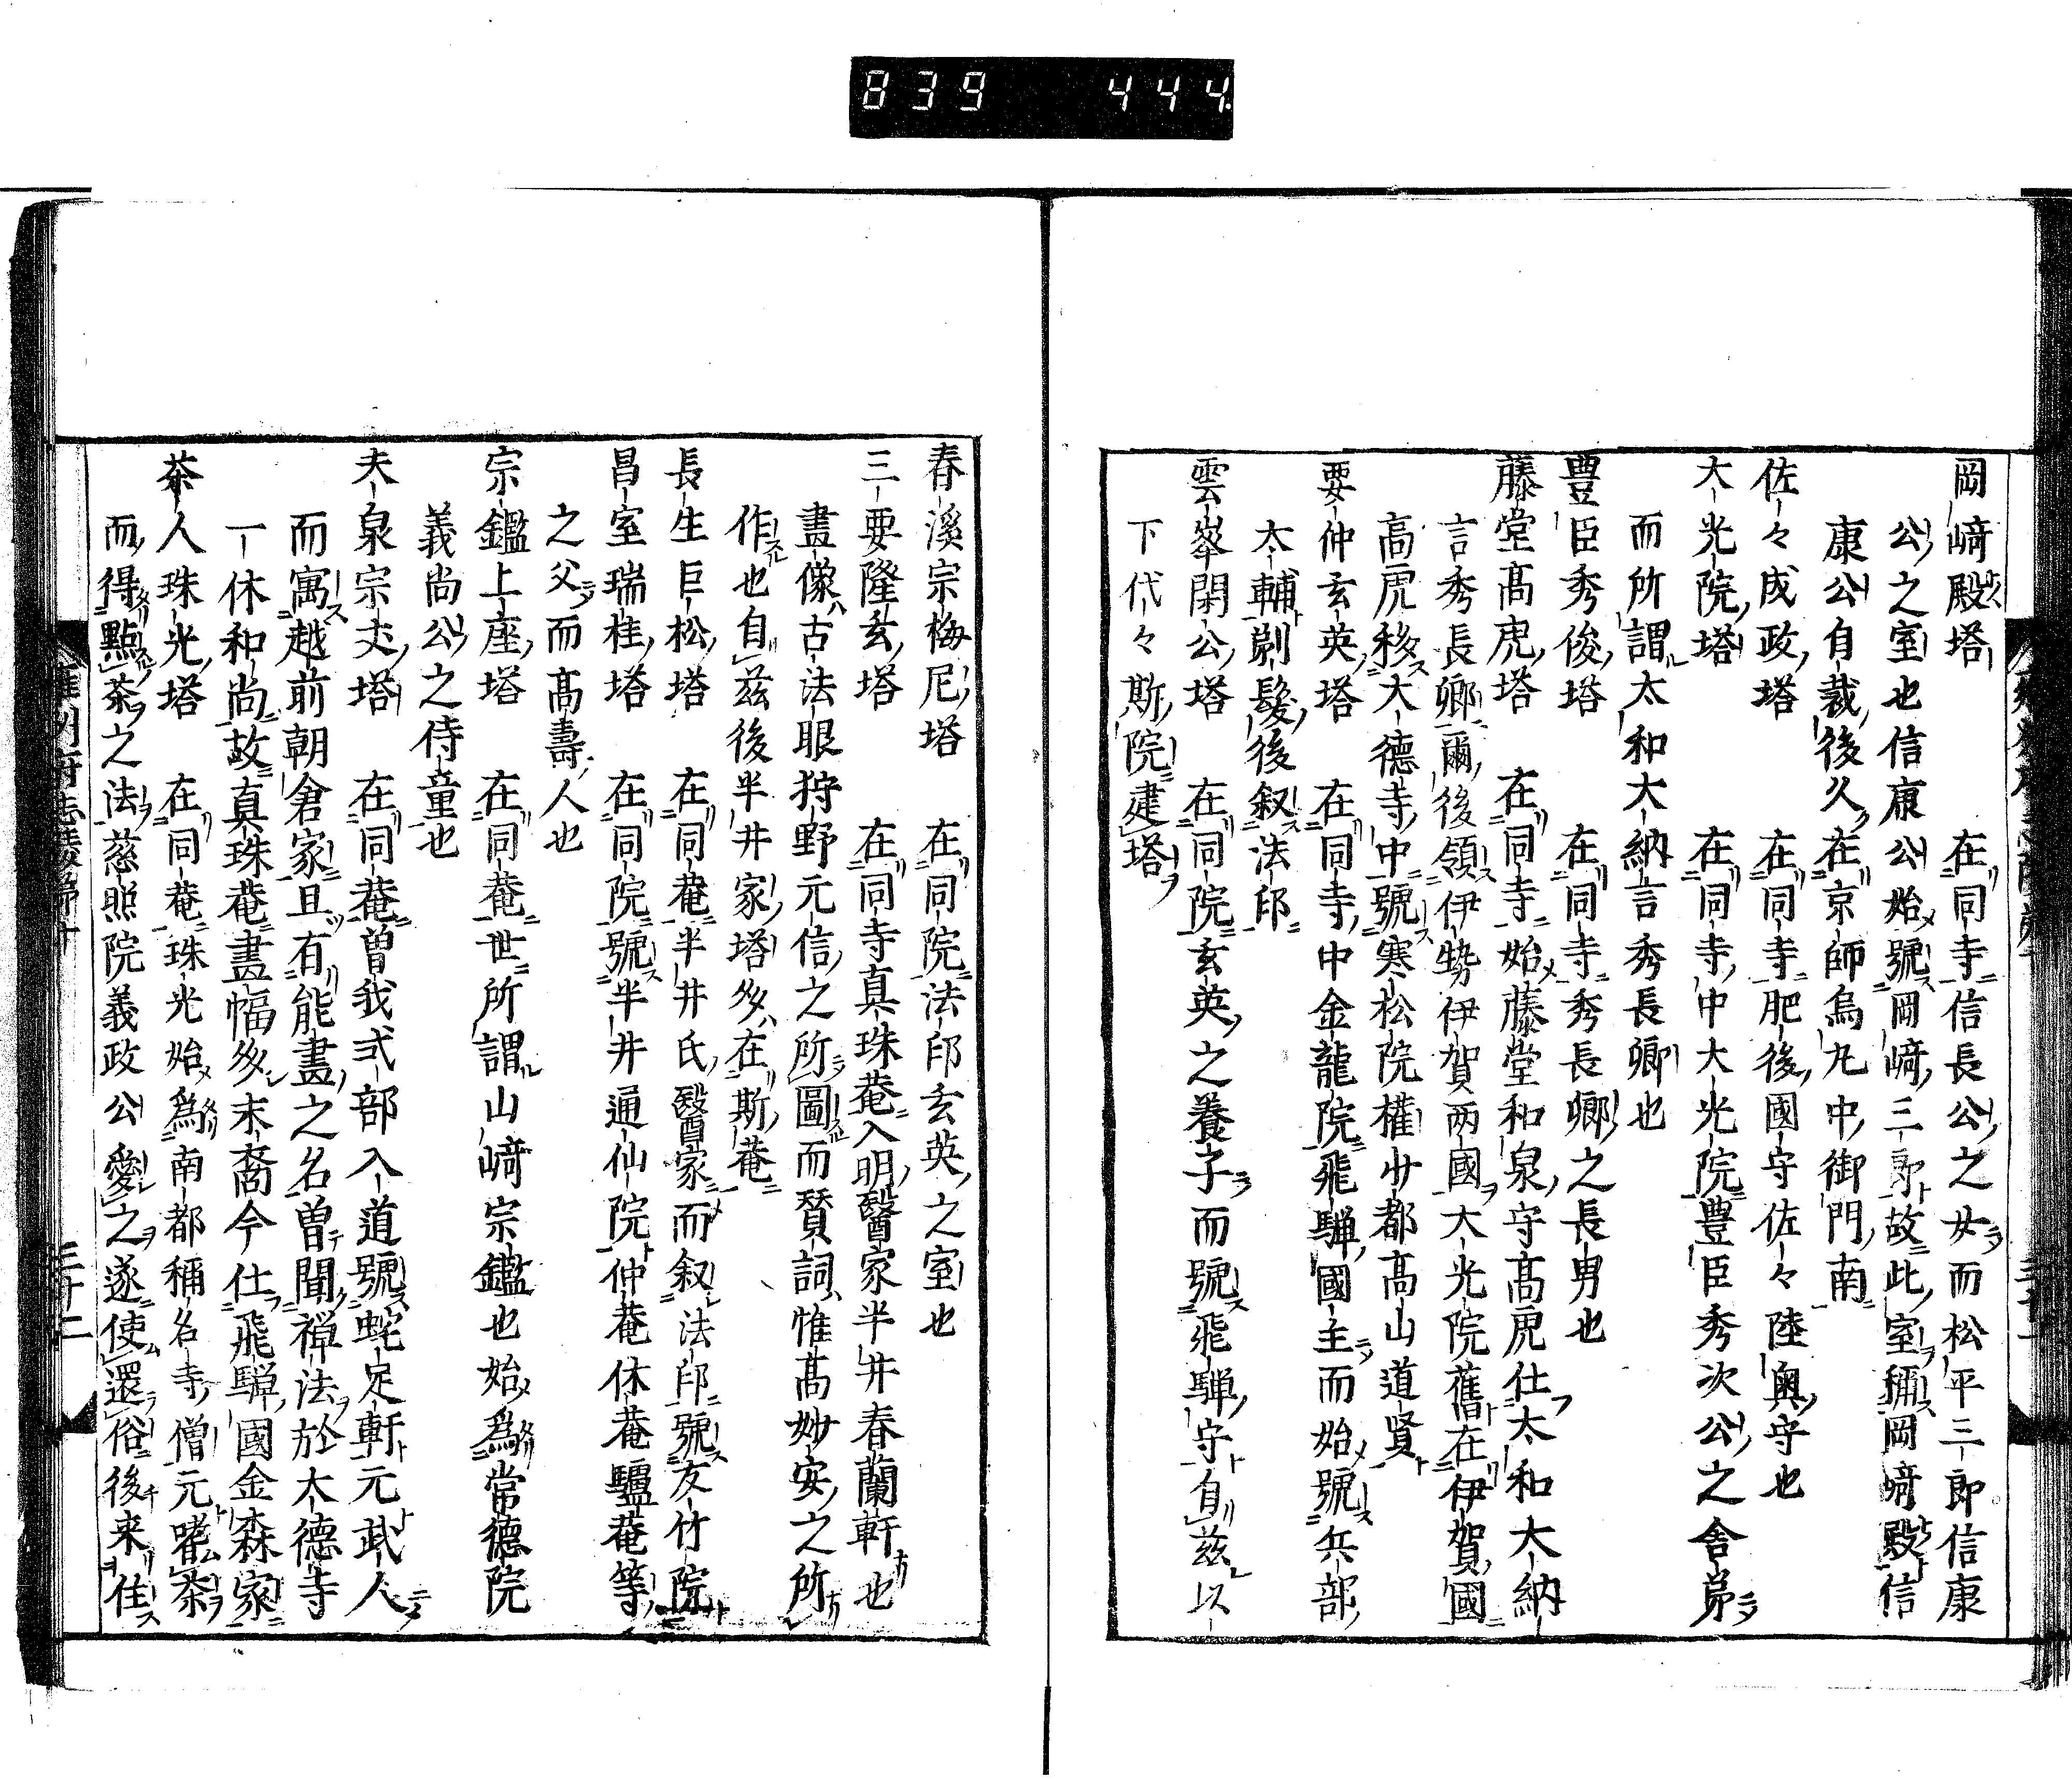 839 444
岡﨑殿塔 在同寺信長公之女而松平三郎信康
公之室也信康公始號岡﨑三郎故此室稱岡﨑殿信
康公自裁後久在京師烏丸中御門南
佐々成政塔 在同寺肥後國守佐々陸奥守也
大光院塔 在同寺中大光院豊臣秀次公之舎弟
而所謂太和大納言秀長卿也
豊臣秀俊塔 在同寺秀長卿之長男也
藤堂髙虎塔 在同寺始藤堂和泉守髙虎仕太和大納
言秀長卿爾後領伊勢伊賀两國大光院舊在伊賀國
高虎移大德寺中號寒松院權少都髙山道賢
要仲玄英塔 在同寺中金龍院飛騨國主而始號兵部
大輔剃髮後叙法印
雲峯閑公塔 在同院玄英之養子而號飛騨守自茲以
下代々斯院建塔
春溪宗梅尼塔 在同院法印玄英之室也
三要隆玄塔 在同寺真珠菴入明醫家半井春蘭軒也
畫像古法眼狩野元信之所圖而賛詞惟髙妙安之所
作也自茲後半井家塔多在斯菴
長生巨松塔 在同菴半井氏醫家而叙法印號友竹院
昌室瑞桂塔 在同院號半井通仙院仲菴休菴驢菴等
之父而髙壽人也
宗鑑上座塔 在同菴世所謂山﨑宗鑑也始為常德院
義尚公之侍童也
夫泉宗丈塔 在同菴曽我式部入道號蛇足軒元武人
而寓越前朝倉家且有能畫之名曽聞禅法於大德寺
一休和尚故真珠菴畫幅多末裔今仕飛騨國金森家
茶人珠光塔 在同菴珠光始為南都稱名寺僧元嗜茶
而得點茶之法慈照院義政公愛之遂使還俗後来住
雍州府志陵第十
三十二